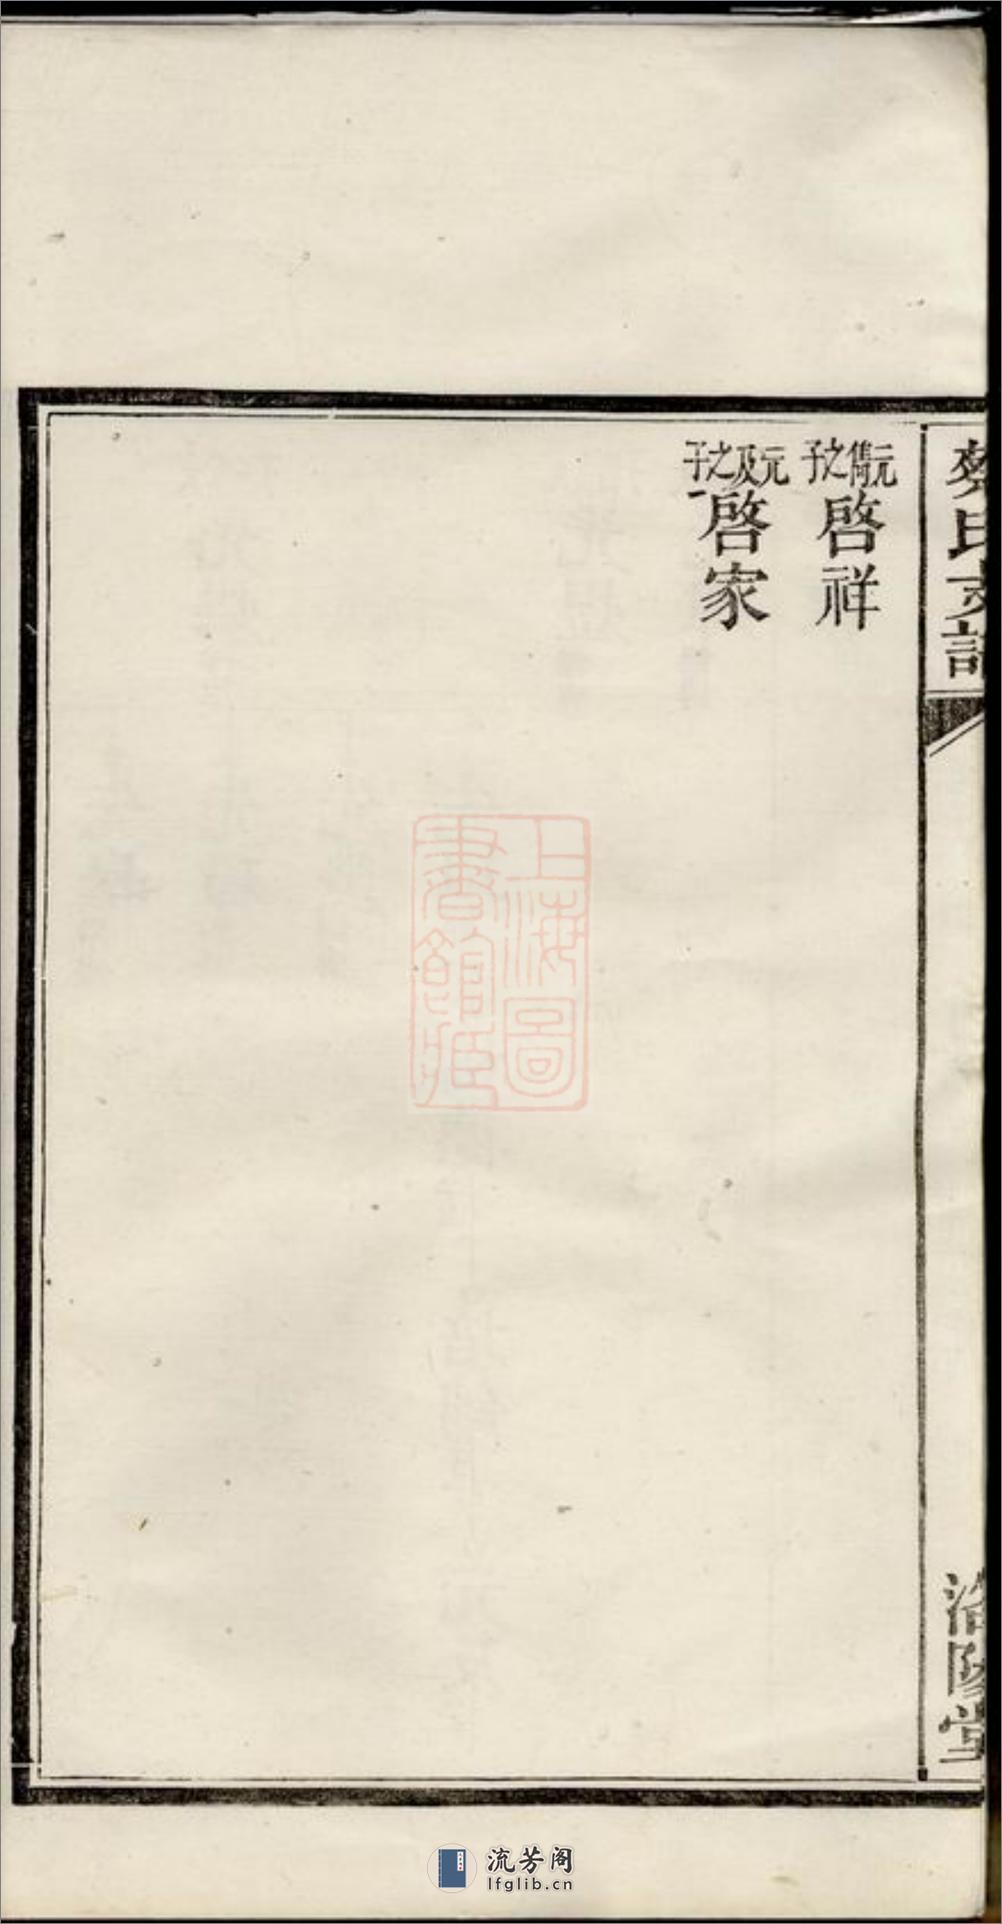 蔡氏支譜
濟陽堂
元儁之子
啓祥
元及之子一
啓家
上海圖
書館藏
流芳阁
lfglib.cn